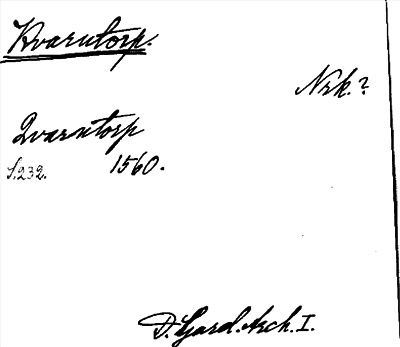 Kvarntorp.
Nrk.?
Qvarntorp
S.232. 1560.
D. Gard. Arch. I.